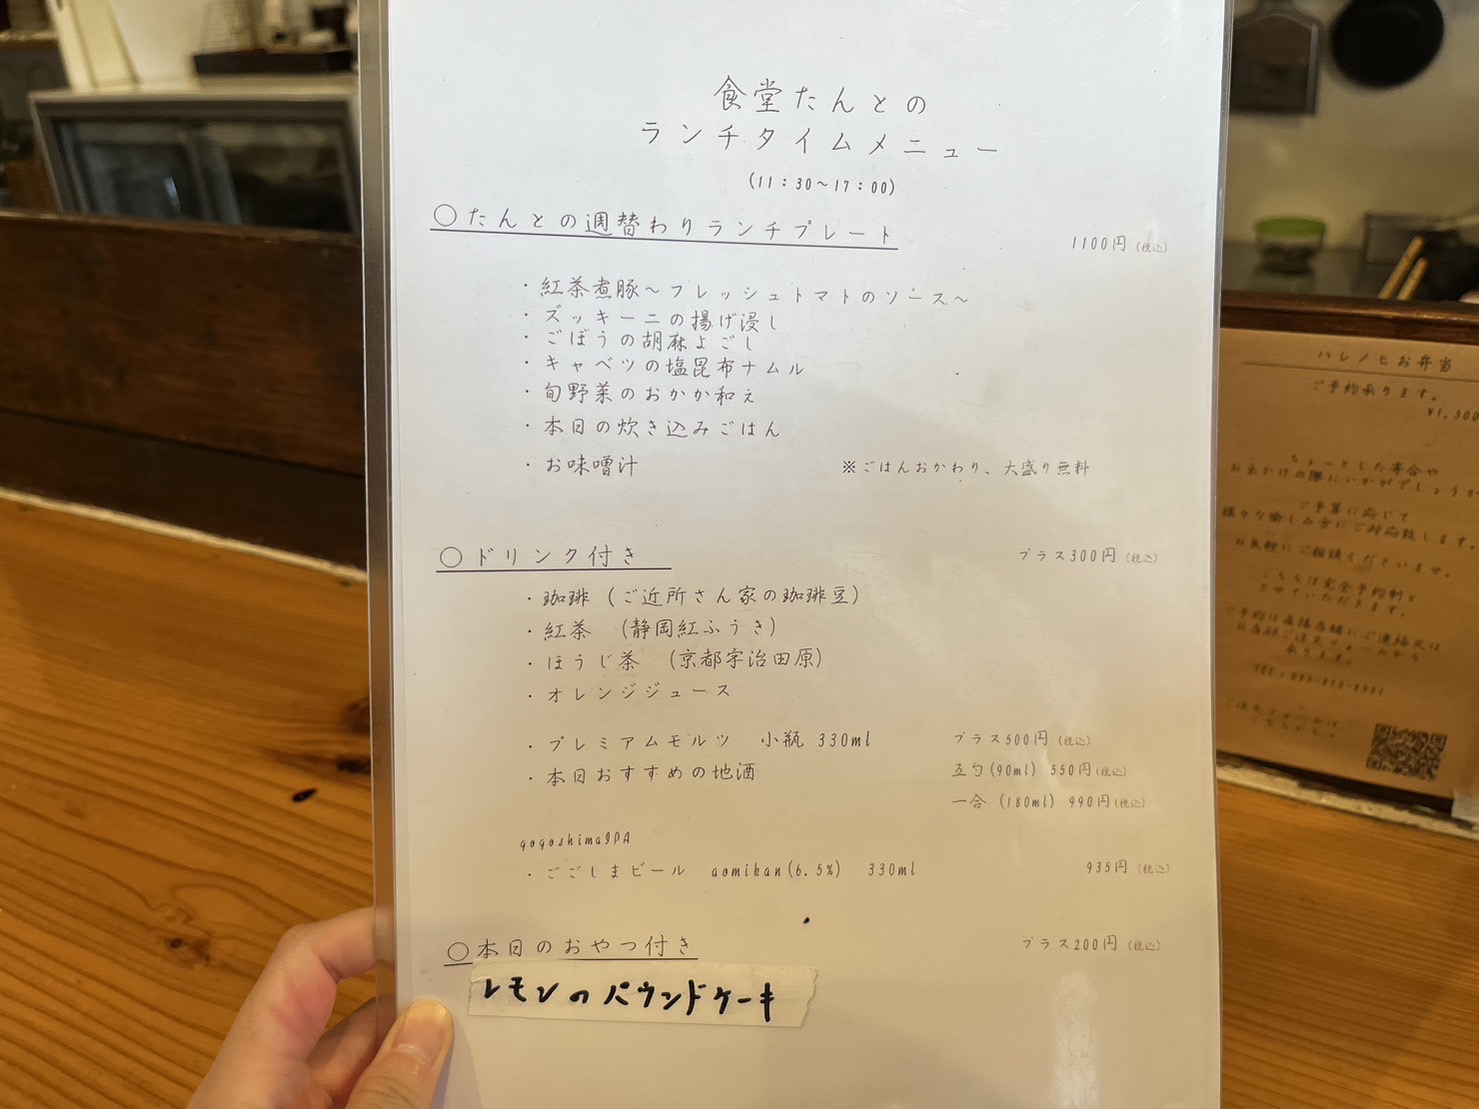 食堂たんとの
ランチタイムメニュー
(11:30～17:00)
○たんとの週替わりランチプレート 1100円(税込)
・紅茶煮豚～フレッシュトマトのソース～
・ズッキーニの揚げ浸し
・ごぼうの胡麻よごし
・キャベツの塩昆布ナムル
・旬野菜のおかか和え
・本日の炊き込みごはん
・お味噌汁 ※ごはんおかわり、大盛り無料
○ドリンク付き プラス300円(税込)
・珈琲(ご近所さん家の珈琲豆)
・紅茶 (静岡紅ふうき)
・ほうじ茶 (京都宇治田原)
・オレンジジュース
・プレミアムモルツ 小瓶 330ml プラス500円(税込)
・本日おすすめの地酒 五勺(90ml) 550円(税込)
一合(180ml) 990円(税込)
gogoshimaIPA
・ごごしまビール aomikan(6.5%) 330ml 935円(税込)
○本日のおやつ付き プラス200円(税込)
レモンのパウンドケーキ
ハレノヒお弁当
ご予約承ります。
ちょっとした集会や
お出かけの際にいかがでしょうか
ご予算に応じて
様々な愉しみ方にご対応致します。
お気軽にご相談くださいませ。
こちらは完全予約制と
させていただきます。
ご予約は直接店舗にご連絡又は
承ります。